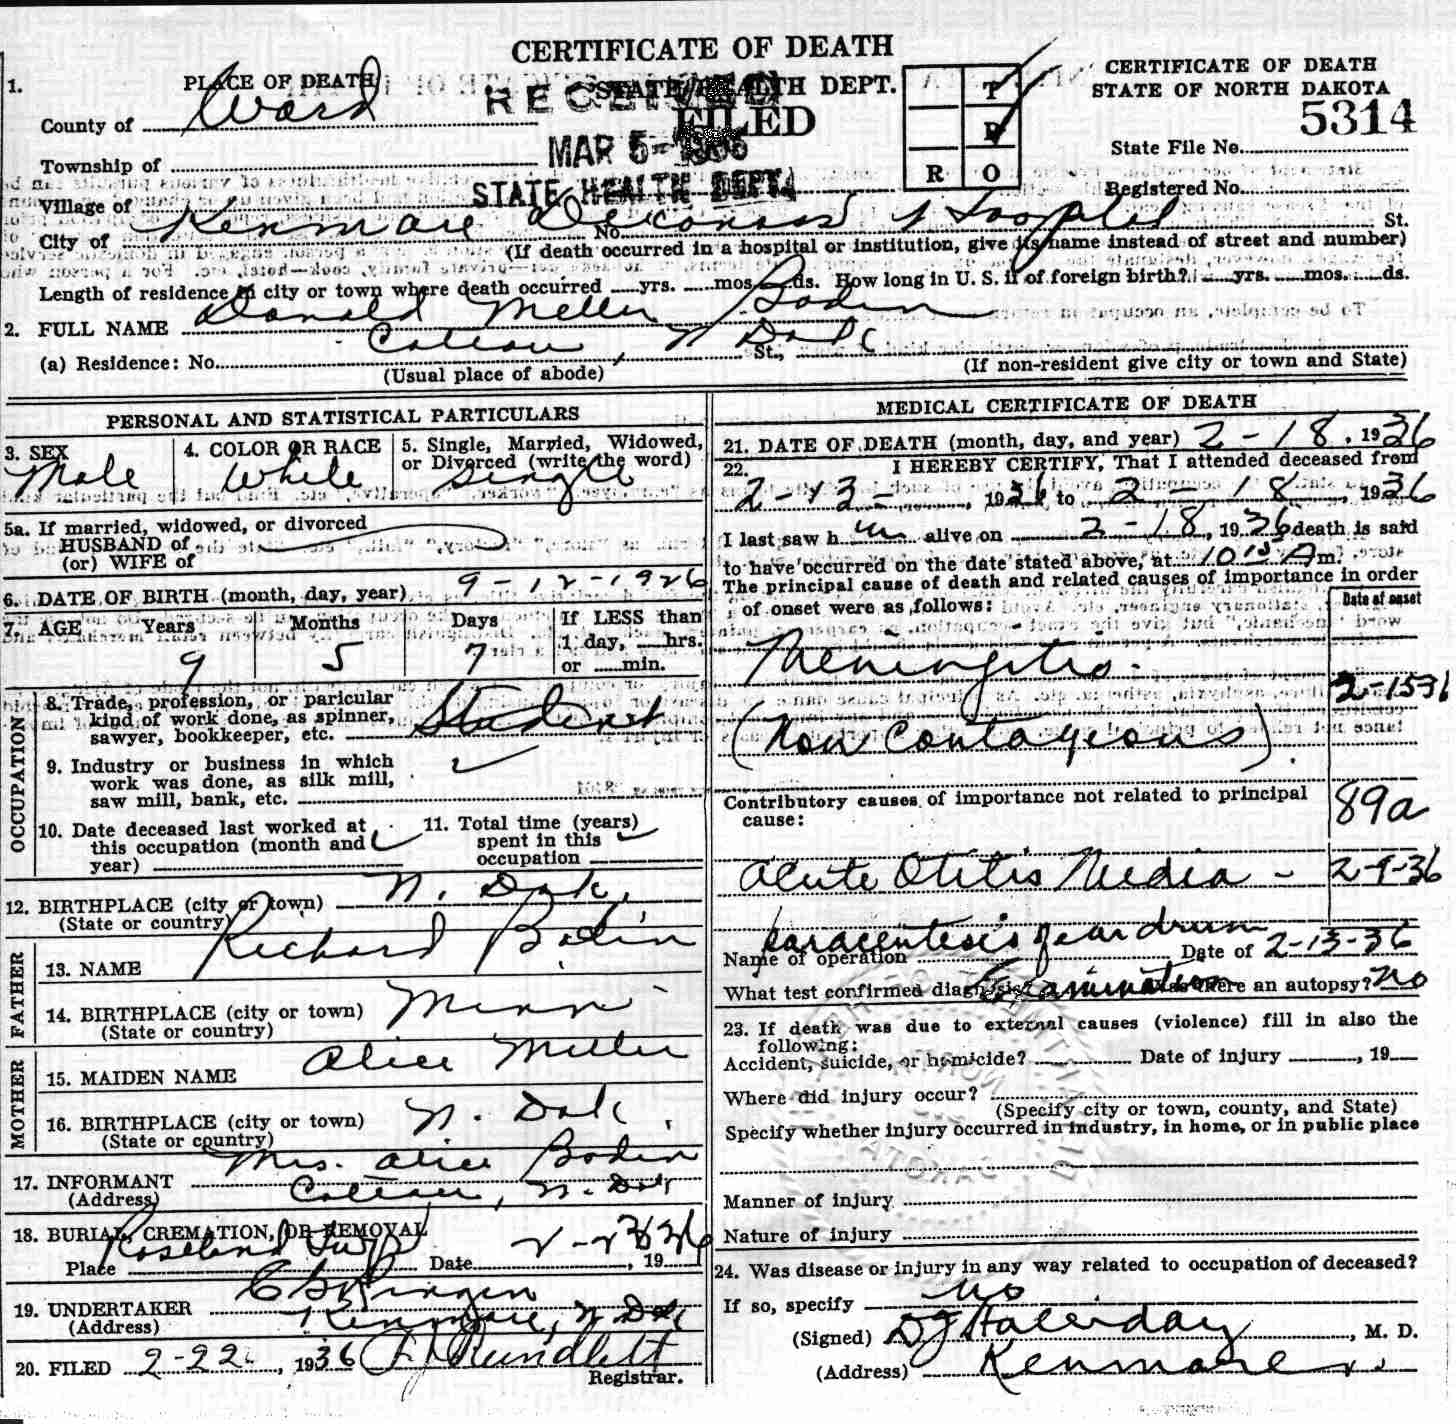 CERTIFICATE OF DEATH
1. PLACE OF DEATH
STATE HEALTH DEPT.
FILED
RECEIVED
MAR 5-1936
STATE HEALTH DEPT.
T
P
R O
CERTIFICATE OF DEATH
STATE OF NORTH DAKOTA
5314
State File No.
Registered No.
County of Ward
Township of
Village of
City of Kenmare No. Deaconess Hospital St.
(If death occurred in a hospital or institution, give its name instead of street and number)
Length of residence in city or town where death occurred yrs. mos. ds. How long in U. S. if of foreign birth? yrs. mos. ds.
2. FULL NAME Donald Meller Bodin
(a) Residence: No. Coteau, N Dak St.,
(Usual place of abode) (If non-resident give city or town and State)
PERSONAL AND STATISTICAL PARTICULARS
3. SEX Male
4. COLOR OR RACE White
5. Single, Married, Widowed, or Divorced (write the word) Single
5a. If married, widowed, or divorced
HUSBAND of
(or) WIFE of
6. DATE OF BIRTH (month, day, year) 9-12-1926
7. AGE Years Months Days If LESS than
1 day, hrs.
9 5 7 or min.
OCCUPATION
8. Trade, profession, or paricular
kind of work done, as spinner,
sawyer, bookkeeper, etc. Student
9. Industry or business in which
work was done, as silk mill,
saw mill, bank, etc.
10. Date deceased last worked at
this occupation (month and
year)
11. Total time (years)
spent in this
occupation
12. BIRTHPLACE (city or town) N. Dak.
(State or country)
FATHER
13. NAME Richard Bodin
14. BIRTHPLACE (city or town) Minn
(State or country)
MOTHER
15. MAIDEN NAME Alice Meller
16. BIRTHPLACE (city or town) N. Dak.
(State or country)
17. INFORMANT Mrs. Alice Bodin
(Address) Coteau, N. Dak
18. BURIAL, CREMATION, OR REMOVAL
Place Roseland Twp Date 19 36
19. UNDERTAKER
(Address) Kenmare, N Dak
20. FILED 2-22, 1936 Rundlett
Registrar.
MEDICAL CERTIFICATE OF DEATH
21. DATE OF DEATH (month, day, and year) 2-18, 1936
22. I HEREBY CERTIFY, That I attended deceased from
2-13-, 1936 to 2-18, 1936
I last saw him alive on 2-18, 1936 death is said
to have occurred on the date stated above, at 10 15 A m.
The principal cause of death and related causes of importance in order
of onset were as follows:
Date of onset
Meningitis.
2-15 36
(Non Contageous).
Contributory causes of importance not related to principal
cause:
89a
Acute Otitis Media - 2-9-36
Name of operation paracentesis of ear drum Date of 2-13-36
What test confirmed diagnosis? Examination Was there an autopsy? No
23. If death was due to external causes (violence) fill in also the
following:
Accident, suicide, or homicide? Date of injury , 19
Where did injury occur?
(Specify city or town, county, and State)
Specify whether injury occurred in industry, in home, or in public place
Manner of injury
Nature of injury
24. Was disease or injury in any way related to occupation of deceased?
If so, specify No
(Signed) DJ Halliday, M. D.
(Address) Kenmare